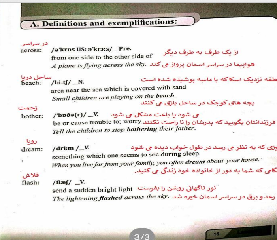 A. Definitions and exemplifications:
در سراسر
across: /əˈkrɒs (US: əˈkrɔːs)/ _Pre.
از یک طرف به طرف دیگر
from one side to the other side of
A plane is flying across the sky.
هواپیما در سراسر آسمان پرواز می کند
ساحل دریا
beach: /biːtʃ/ _N.
منطقه نزدیک دریا که با ماسه پوشیده شده است
area near the sea which is covered with sand
Small children are playing on the beach
بچه های کوچک در ساحل بازی می کنند
bother: _V.
be or cause trouble to; worry
Tell the children to stop bothering their father.
رویا
dream: /driːm/ _N.
something which one seems to see during sleep
When you live far from your family, you often dream about your home.
flash: /flæʃ/ _V.
send a sudden bright light
The lightning flashed across the sky.
3/3